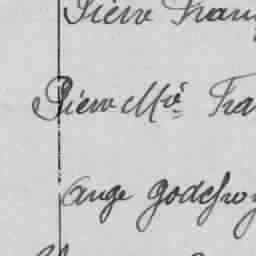 Pierre Fran
Pierre Mie Fra
Ange Godefroy